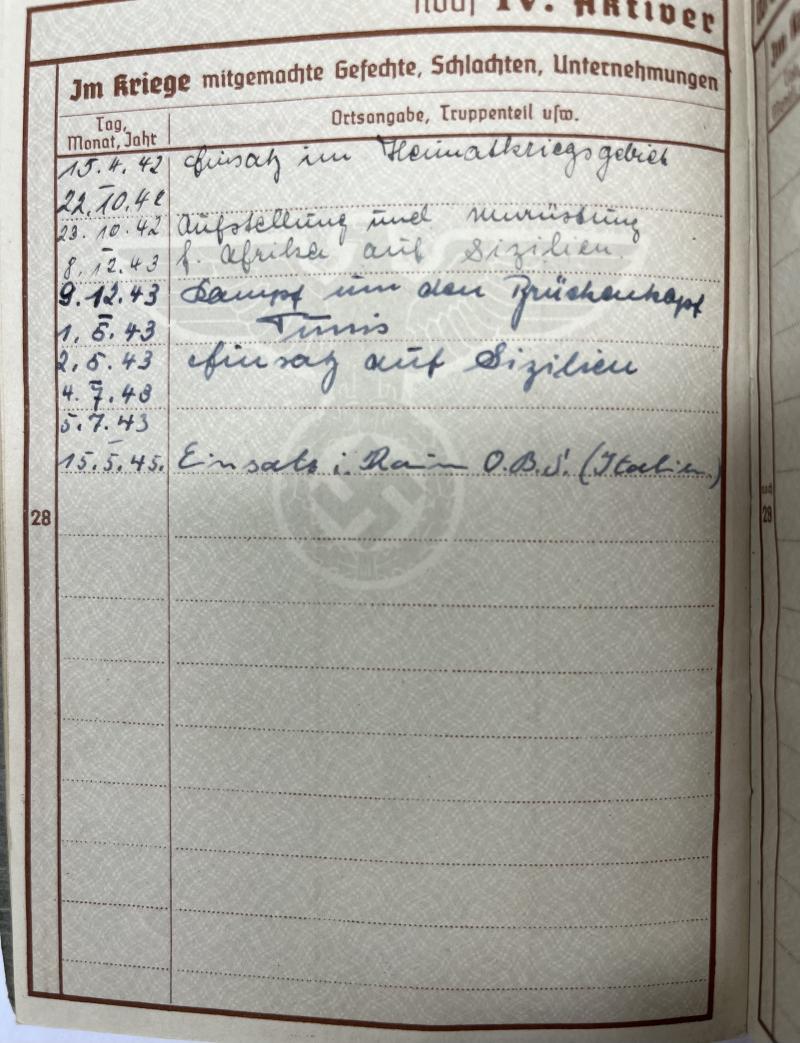 IV. Aktiver
Im Kriege mitgemachte Gefechte, Schlachten, Unternehmungen
Tag, Monat, Jahr
Ortsangabe, Truppenteil usw.
15.4.42 Einsatz im Heimatkriegsgebiet
22.10.42
23.10.42 Aufstellung und Umrüstung
8.12.43 f. Afrika auf Sizilien.
9.12.43 Kampf um den Brückenkopf
1.5.43 Tunis
2.5.43 Einsatz auf Sizilien
4.7.43
5.7.43
15.5.45. Einsatz i. Raum O.B.S. (Italien)
28
28